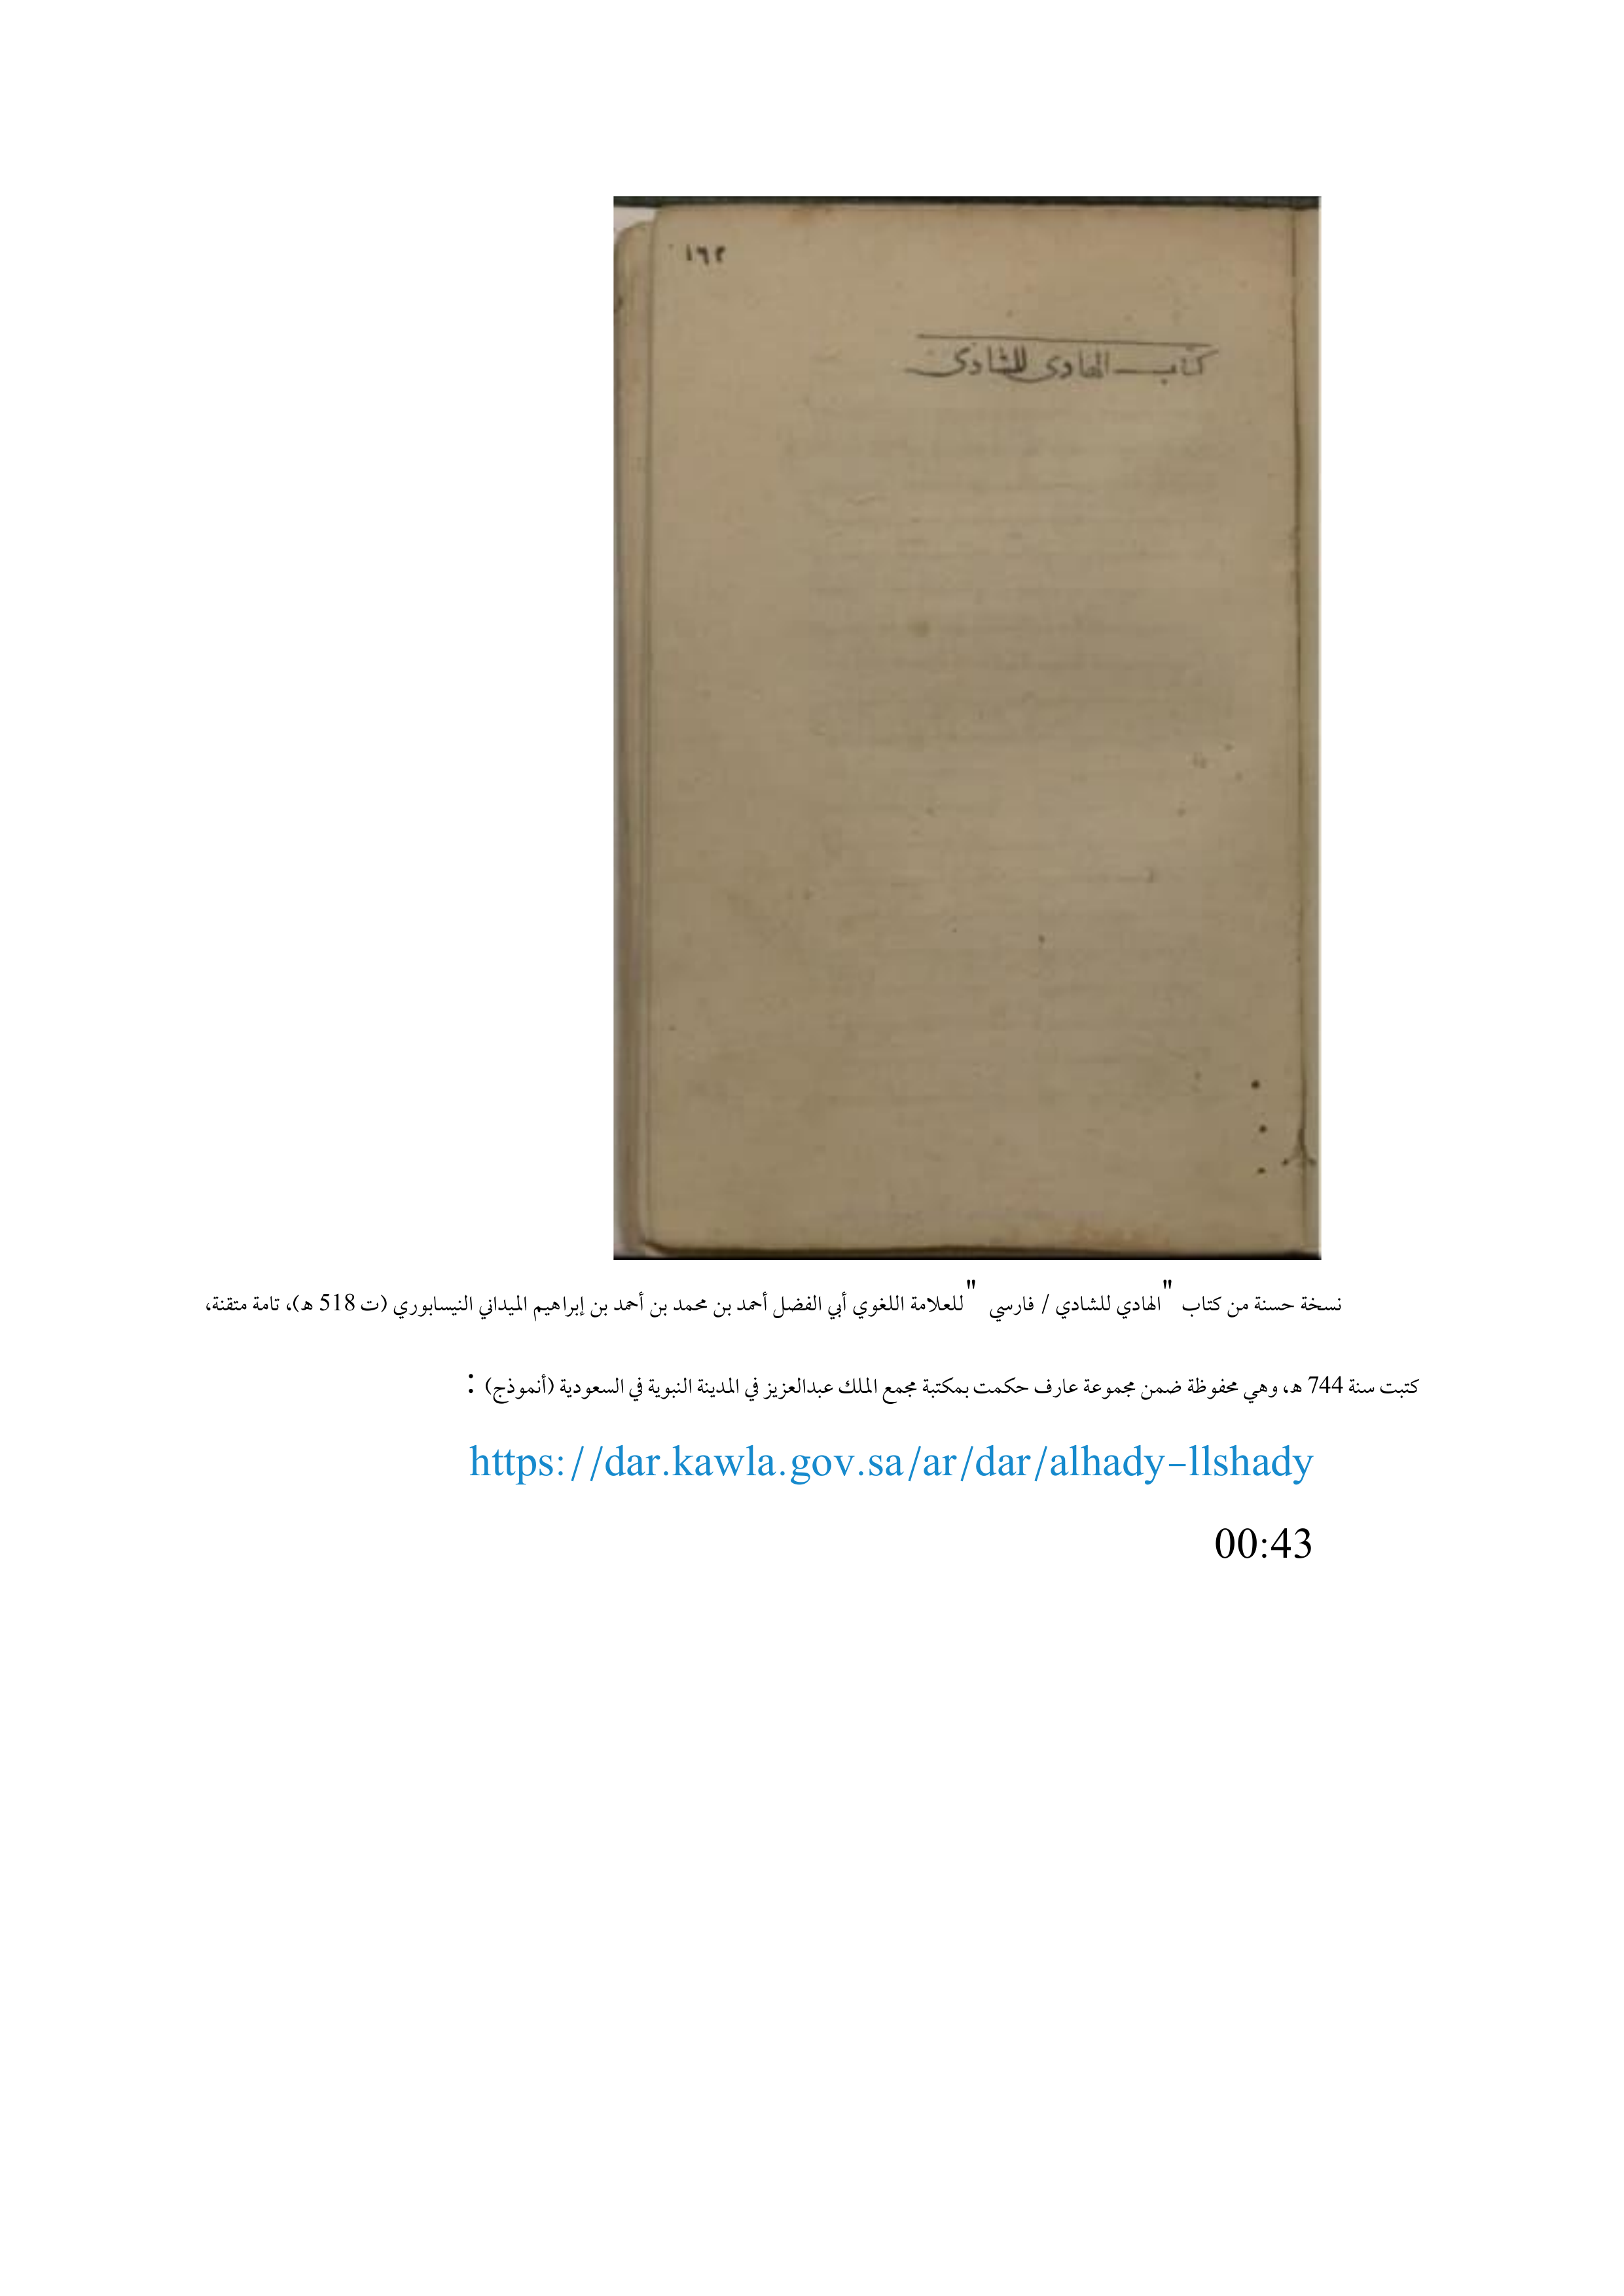 ١٦٢
كتاب الهادى للشادى
نسخة حسنة من كتاب "الهادي للشادي / فارسي "للعلامة اللغوي أبي الفضل أحمد بن محمد بن أحمد بن إبراهيم الميداني النيسابوري (ت 518 هـ)، تامة متقنة،
كتبت سنة 744 هـ، وهي محفوظة ضمن مجموعة عارف حكمت بمكتبة مجمع الملك عبدالعزيز في المدينة النبوية في السعودية (أنموذج) :
https://dar.kawla.gov.sa/ar/dar/alhady-llshady
00:43